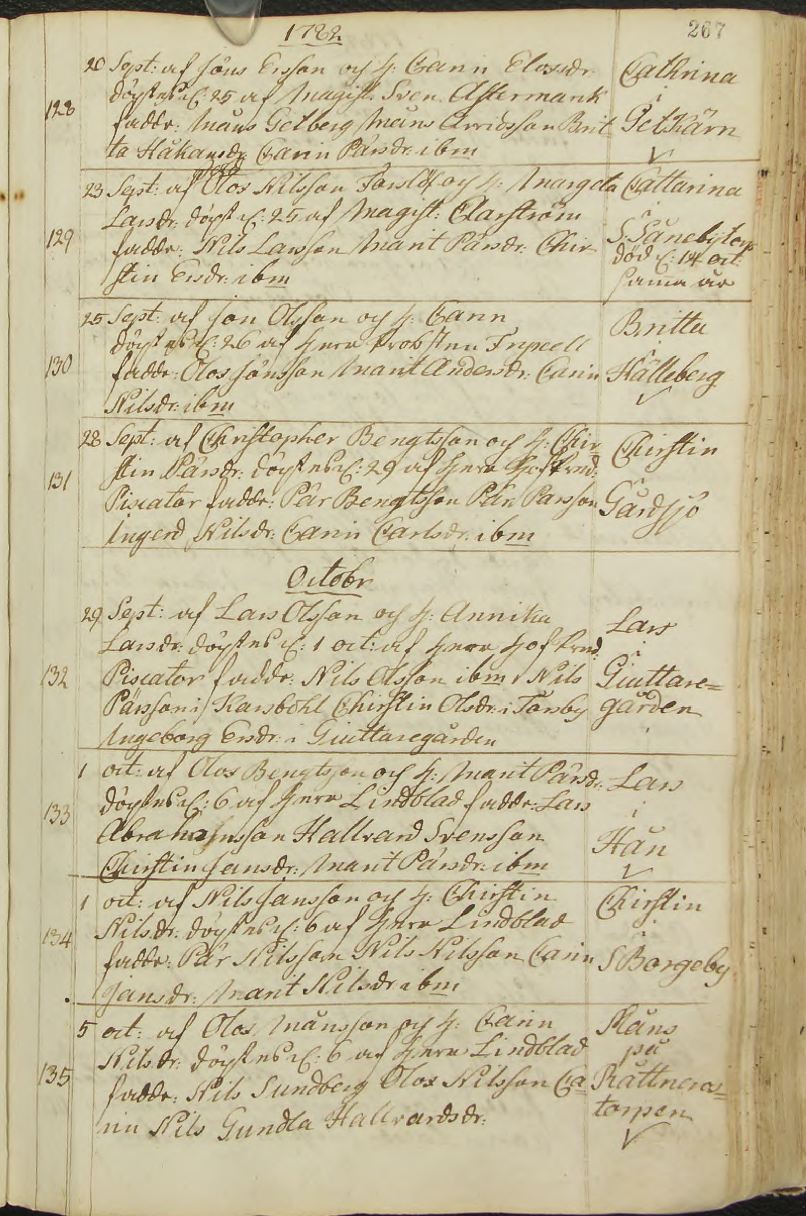 1782
267
20 Sept: af Jöns Ersson och H: Carin Olosdr.
döptes d: 25 af Magist. Sven Aftermank
fadde: Måns Getberg Måns Arvidsson Brit
ta Håkansdr Carin Pärsdr. ibm
128
Cathrina
i
Getkärn
23 Sept: af Olos Nilsson och H: Margeta
Larsdr. döpt d: 25 af Magist: Clarström
fadde: Nils Larsson Marit Pärsdr. Chir
stin Ersdr. ibm
129
Cattarina
i
S Sånebytorp
död d: 14 oct:
samma år
25 Sept. af Jon Olsson och H: Carin
döptes d: 26 af Herr Probsten Fryxell
fadde: Olos Jönsson Marit Andersdr. Carin
Nilsdr. ibm
130
Britta
i
Hålleberg
28 Sept: af Christopher Bengtsson och H: Chir
stin Pärsdr. döptes d: 29 af Herr Hof Pred:
Piscator fadde: Pär Bengtsson Pär Parsson
Ingerd Nilsdr. Carin Carlsdr. ibm
131
Chirstin
i
Gårdsjö
Octobr
29 Sept: af Lars Olsson och H: Annika
Larsdr. döptes d: 1 oct: af Herr Hof Pred:
Piscator fadde: Nils Olsson ibm Nils
Pärsson i Karsbohl Chirstin Olsdr. i Torsby
Ingeborg Ersdr. i Giuttaregården
132
Lars
i
Giuttare=
gården
1 oct: af Olos Bengtsson och H: Marit Pärsd:
döptes d: 6 af Herr Lindblad fadde: Lars
Abrahamsson Hallvard Svensson
Chirstin Jansdr. Marit Pärsdr. ibm
133
Lars
i
Hån
1 oct: af Nils Jansson och H: Chirstin
Nilsdr. döptes d: 6 af Herr Lindblad
fadde: Pär Nilsson Nils Nilsson Carin
Jansdr. Marit Nilsdr ibm
134
Chirstin
i
S Borgeby
5 oct: af Olos Månsson och H: Carin
Nilsdr: döptes d: 6 af Herr Lindblad
fadde: Nils Sundberg Olos Nilsson Ca=
rin Nils Gundla Hallvardsdr.
135
Måns
på
Råttneros=
torpen